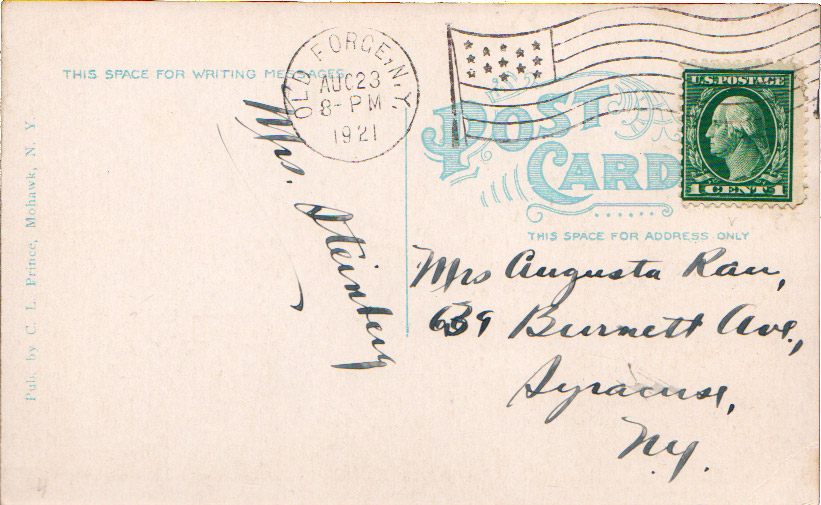 THIS SPACE FOR WRITING MESSAGES
OLD FORGE, N.Y.
AUG 23
8 - PM
1921
U.S. POSTAGE
1 CENT 1
POST
CARD
THIS SPACE FOR ADDRESS ONLY
Mrs. Steinberg
Mrs Augusta Rau,
639 Burnett Ave.,
Syracuse,
N.Y.
Pub. by C. L. Prince, Mohawk, N. Y.